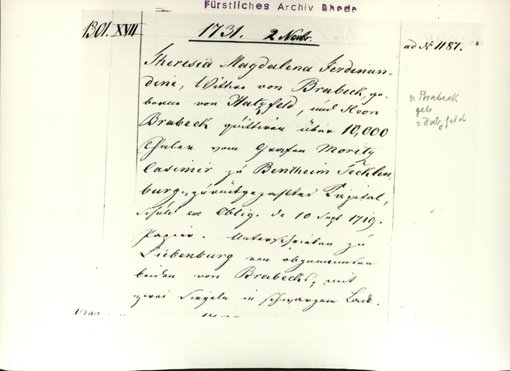 Fürstliches Archiv Rheda
1301. XVII
1731. 2 Novbr.
ad № 1187.
Theresia Magdalena Ferdinan-
dine, Wittwe von Brabeck, ge-
borene von Hatzfeld, und N von
Brabeck quittiren über 10,000
Thaler vom Grafen Moritz
Casimir zu Bentheim Tecklen-
burg, zurückgezahltes Capital,
Schuld ex Oblig. de 10 Sept 1719.
Papier. Unterschrieben zu
Liebenburg von obgenannten
beiden von Brabecks, mit
zwei Siegeln in schwarzem Lack.
v. Brabeck
geb
v. Hatzfeld